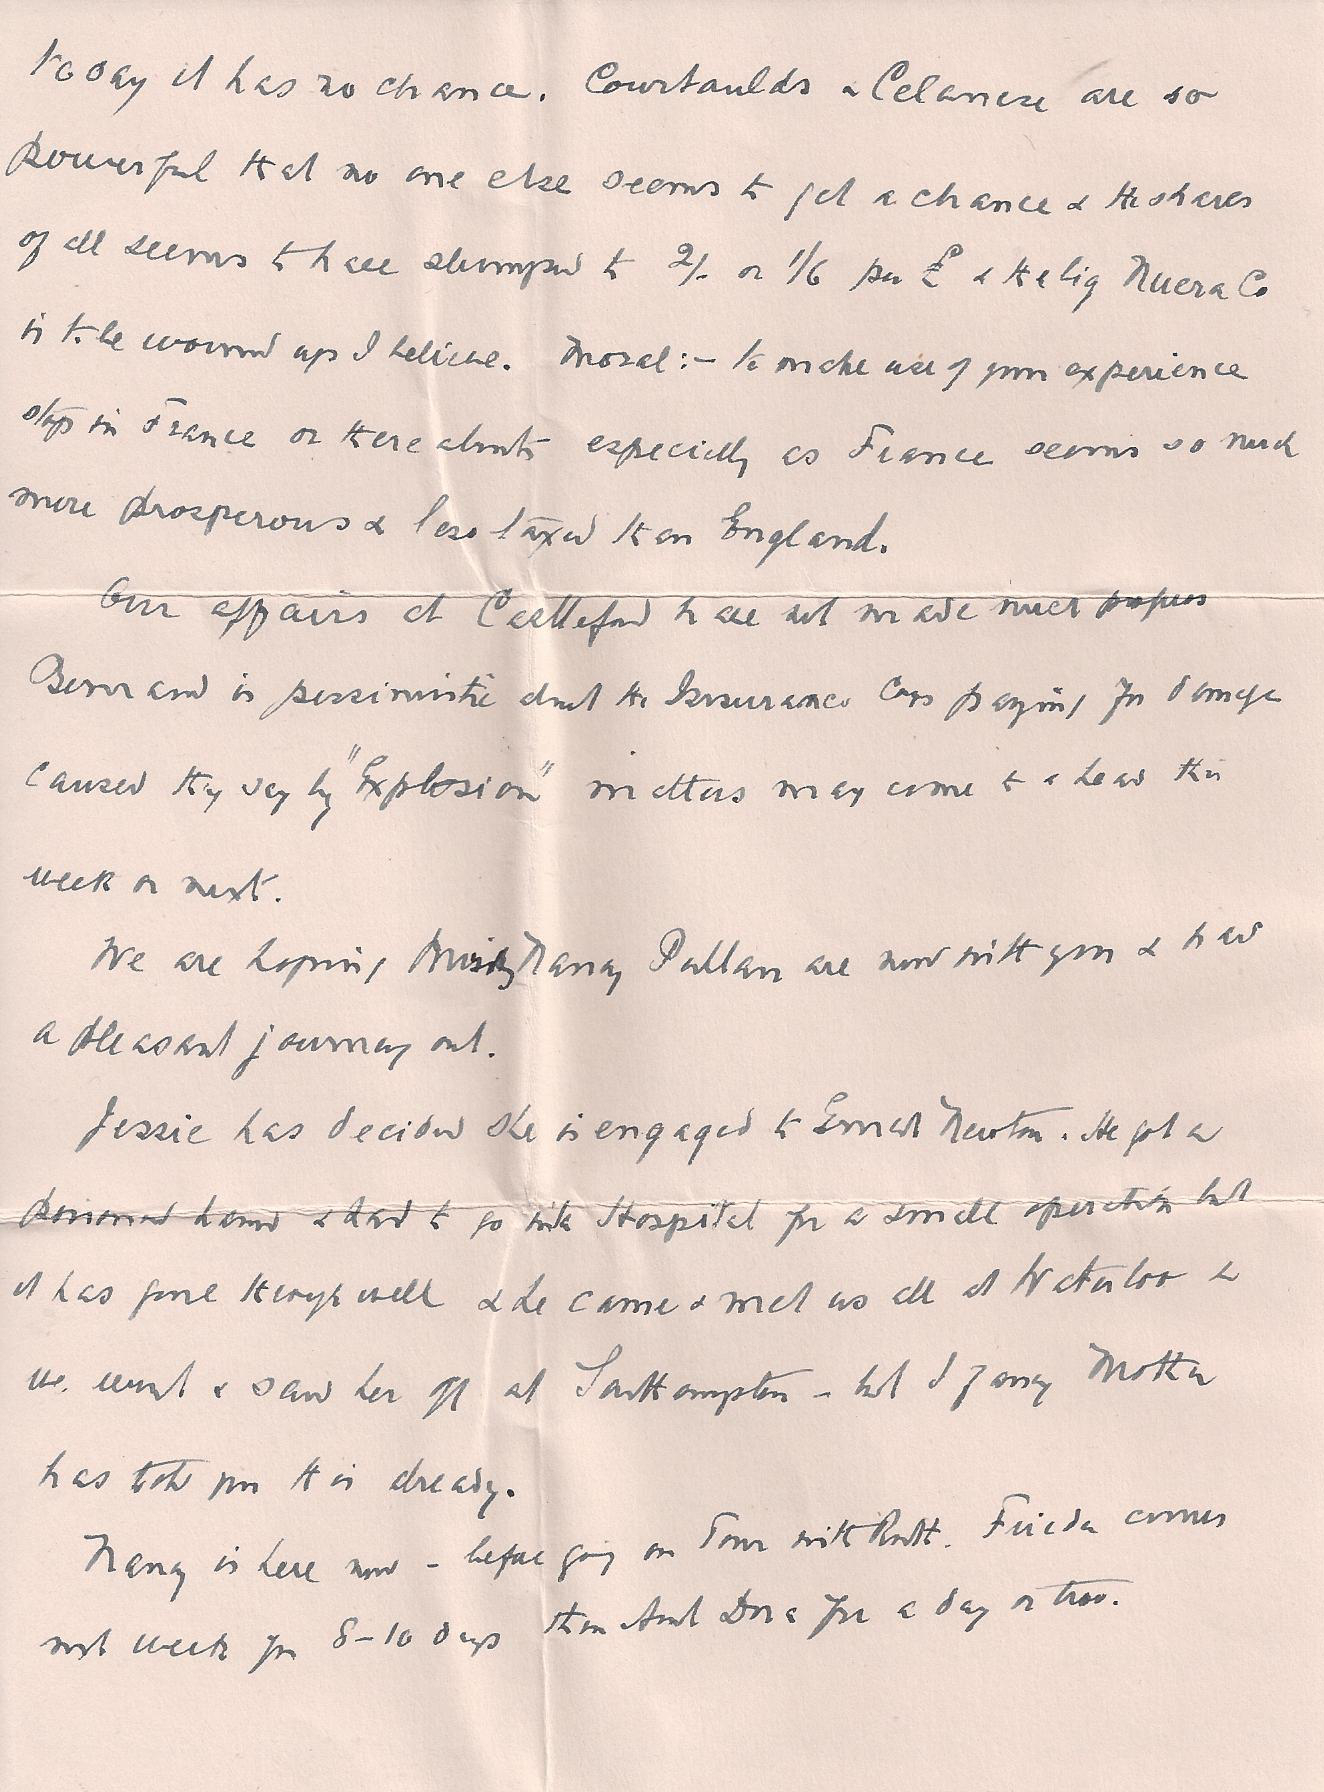 today it has no chance. Courtaulds & Celanese are so
powerful that no one else seems to get a chance & the shares
of all seems to have slumped to 2/- or 1/6 per £ & the big Nuera Co
is to be wound up I believe. Moral:- to make use of your experience
stop in France or thereabouts especially as France seems so much
more prosperous & less taxed than England.
Our affairs at Castleford have not made much progress
Bernard is pessimistic about the Insurance Cos paying for damage
caused they say by "Explosion" matters may come to a head this
week or next.
We are hoping Nancy Pullan are now with you & had
a pleasant journey out.
Jessie has decided she is engaged to Ernest Newton. He got a
poisoned hand & had to go into Hospital for a small operation but
it has gone through well & he came & met us all at Waterloo &
we went & saw her off at Southampton - but I fancy Mother
has told you this already.
Nancy is here now - before going on Tour with Ruth. Frieda comes
next week for 8-10 days then Aunt Dora for a day or two.